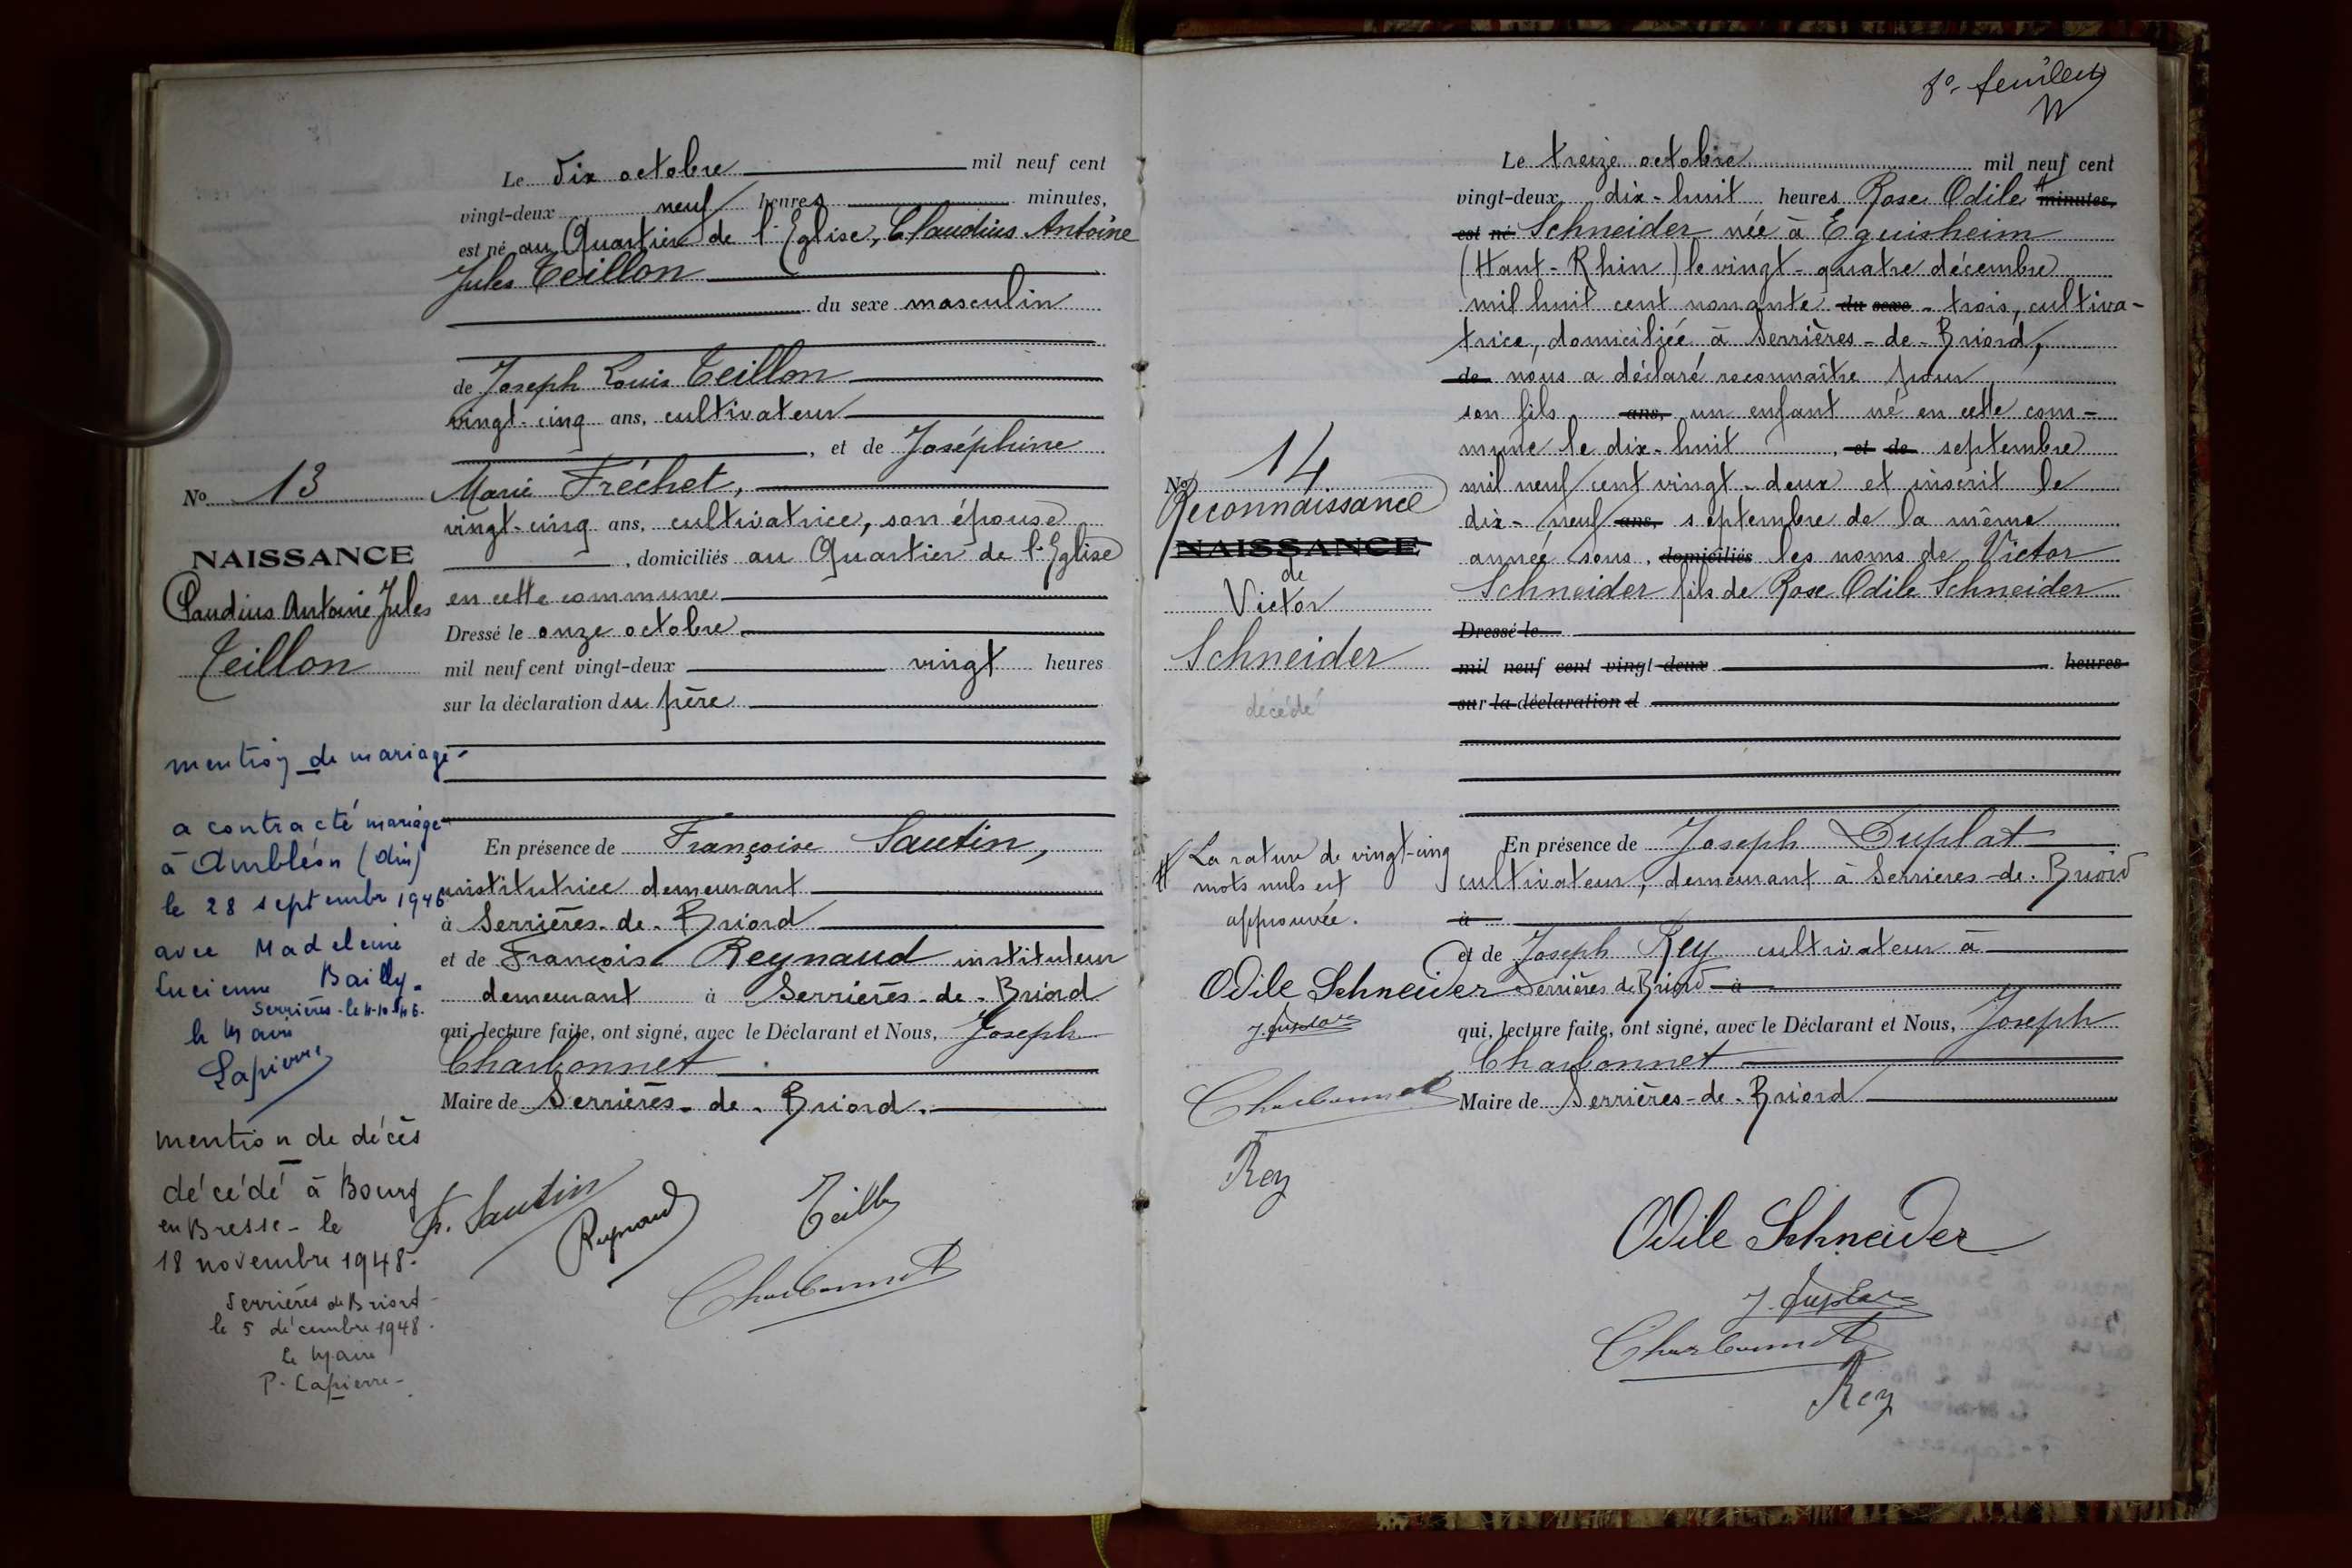 Le dix octobre mil neuf cent
vingt-deux neuf heures minutes,
est né au Quartier de l'Eglise, Claudius Antoine
Jules Teillon
du sexe masculin
de Joseph Louis Teillon
vingt-cinq ans, cultivateur
, et de Joséphine
Marie Fréchet,
vingt-cinq ans, cultivatrice, son épouse
, domiciliés au Quartier de l'Eglise
en cette commune
Dressé le onze octobre
mil neuf cent vingt-deux vingt heures
sur la déclaration du père
En présence de Françoise Sautin,
institutrice demeurant
à Serrières-de-Briord
et de François Reynaud instituteur
demeurant à Serrières-de-Briord
qui, lecture faite, ont signé, avec le Déclarant et Nous, Joseph
Charbonnet
Maire de Serrières-de-Briord.
F. Sautin
Reynaud
Teillon
Charbonnet
No 13
NAISSANCE
Claudius Antoine Jules
Teillon
mention de mariage
a contracté mariage
à Ambléon (Ain)
le 28 septembre 1946
avec Madeleine
Lucienne Bailly.
Serrières-le 4-10-46.
le Maire
Lapierre
mention de décès
décédé à Bourg
en Bresse - le
18 novembre 1948.
Serrières de Briord
le 5 décembre 1948.
le Maire
P. Lapierre
Le treize octobre mil neuf cent
vingt-deux dix-huit heures Rose Odile minutes,
est né Schneider née à Eguisheim
(Haut-Rhin) le vingt-quatre décembre
mil huit cent nonante du sexe - trois, cultiva-
trice, domiciliée à Serrières-de-Briord,
de nous a déclaré reconnaître pour
son fils ans, un enfant né en cette com-
mune le dix-huit , et de septembre
mil neuf cent vingt-deux et inscrit le
dix-neuf ans, septembre de la même
année sous , domiciliés les noms de Victor
Schneider fils de Rose Odile Schneider
Dressé le
mil neuf cent vingt-deux heures
sur la déclaration d
En présence de Joseph Duplat
cultivateur, demeurant à Serrières-de-Briord
à
et de Joseph Rey cultivateur à
Serrières de Briord à
qui, lecture faite, ont signé, avec le Déclarant et Nous, Joseph
Charbonnet
Maire de Serrières-de-Briord
Odile Schneider
J. Duplat
Charbonnet
Rey
No 14
Reconnaissance
NAISSANCE
de
Victor
Schneider
décédé
La rature de vingt-cinq
mots nuls est
approuvée.
Odile Schneider
J. Duplat
Charbonnet
Rey